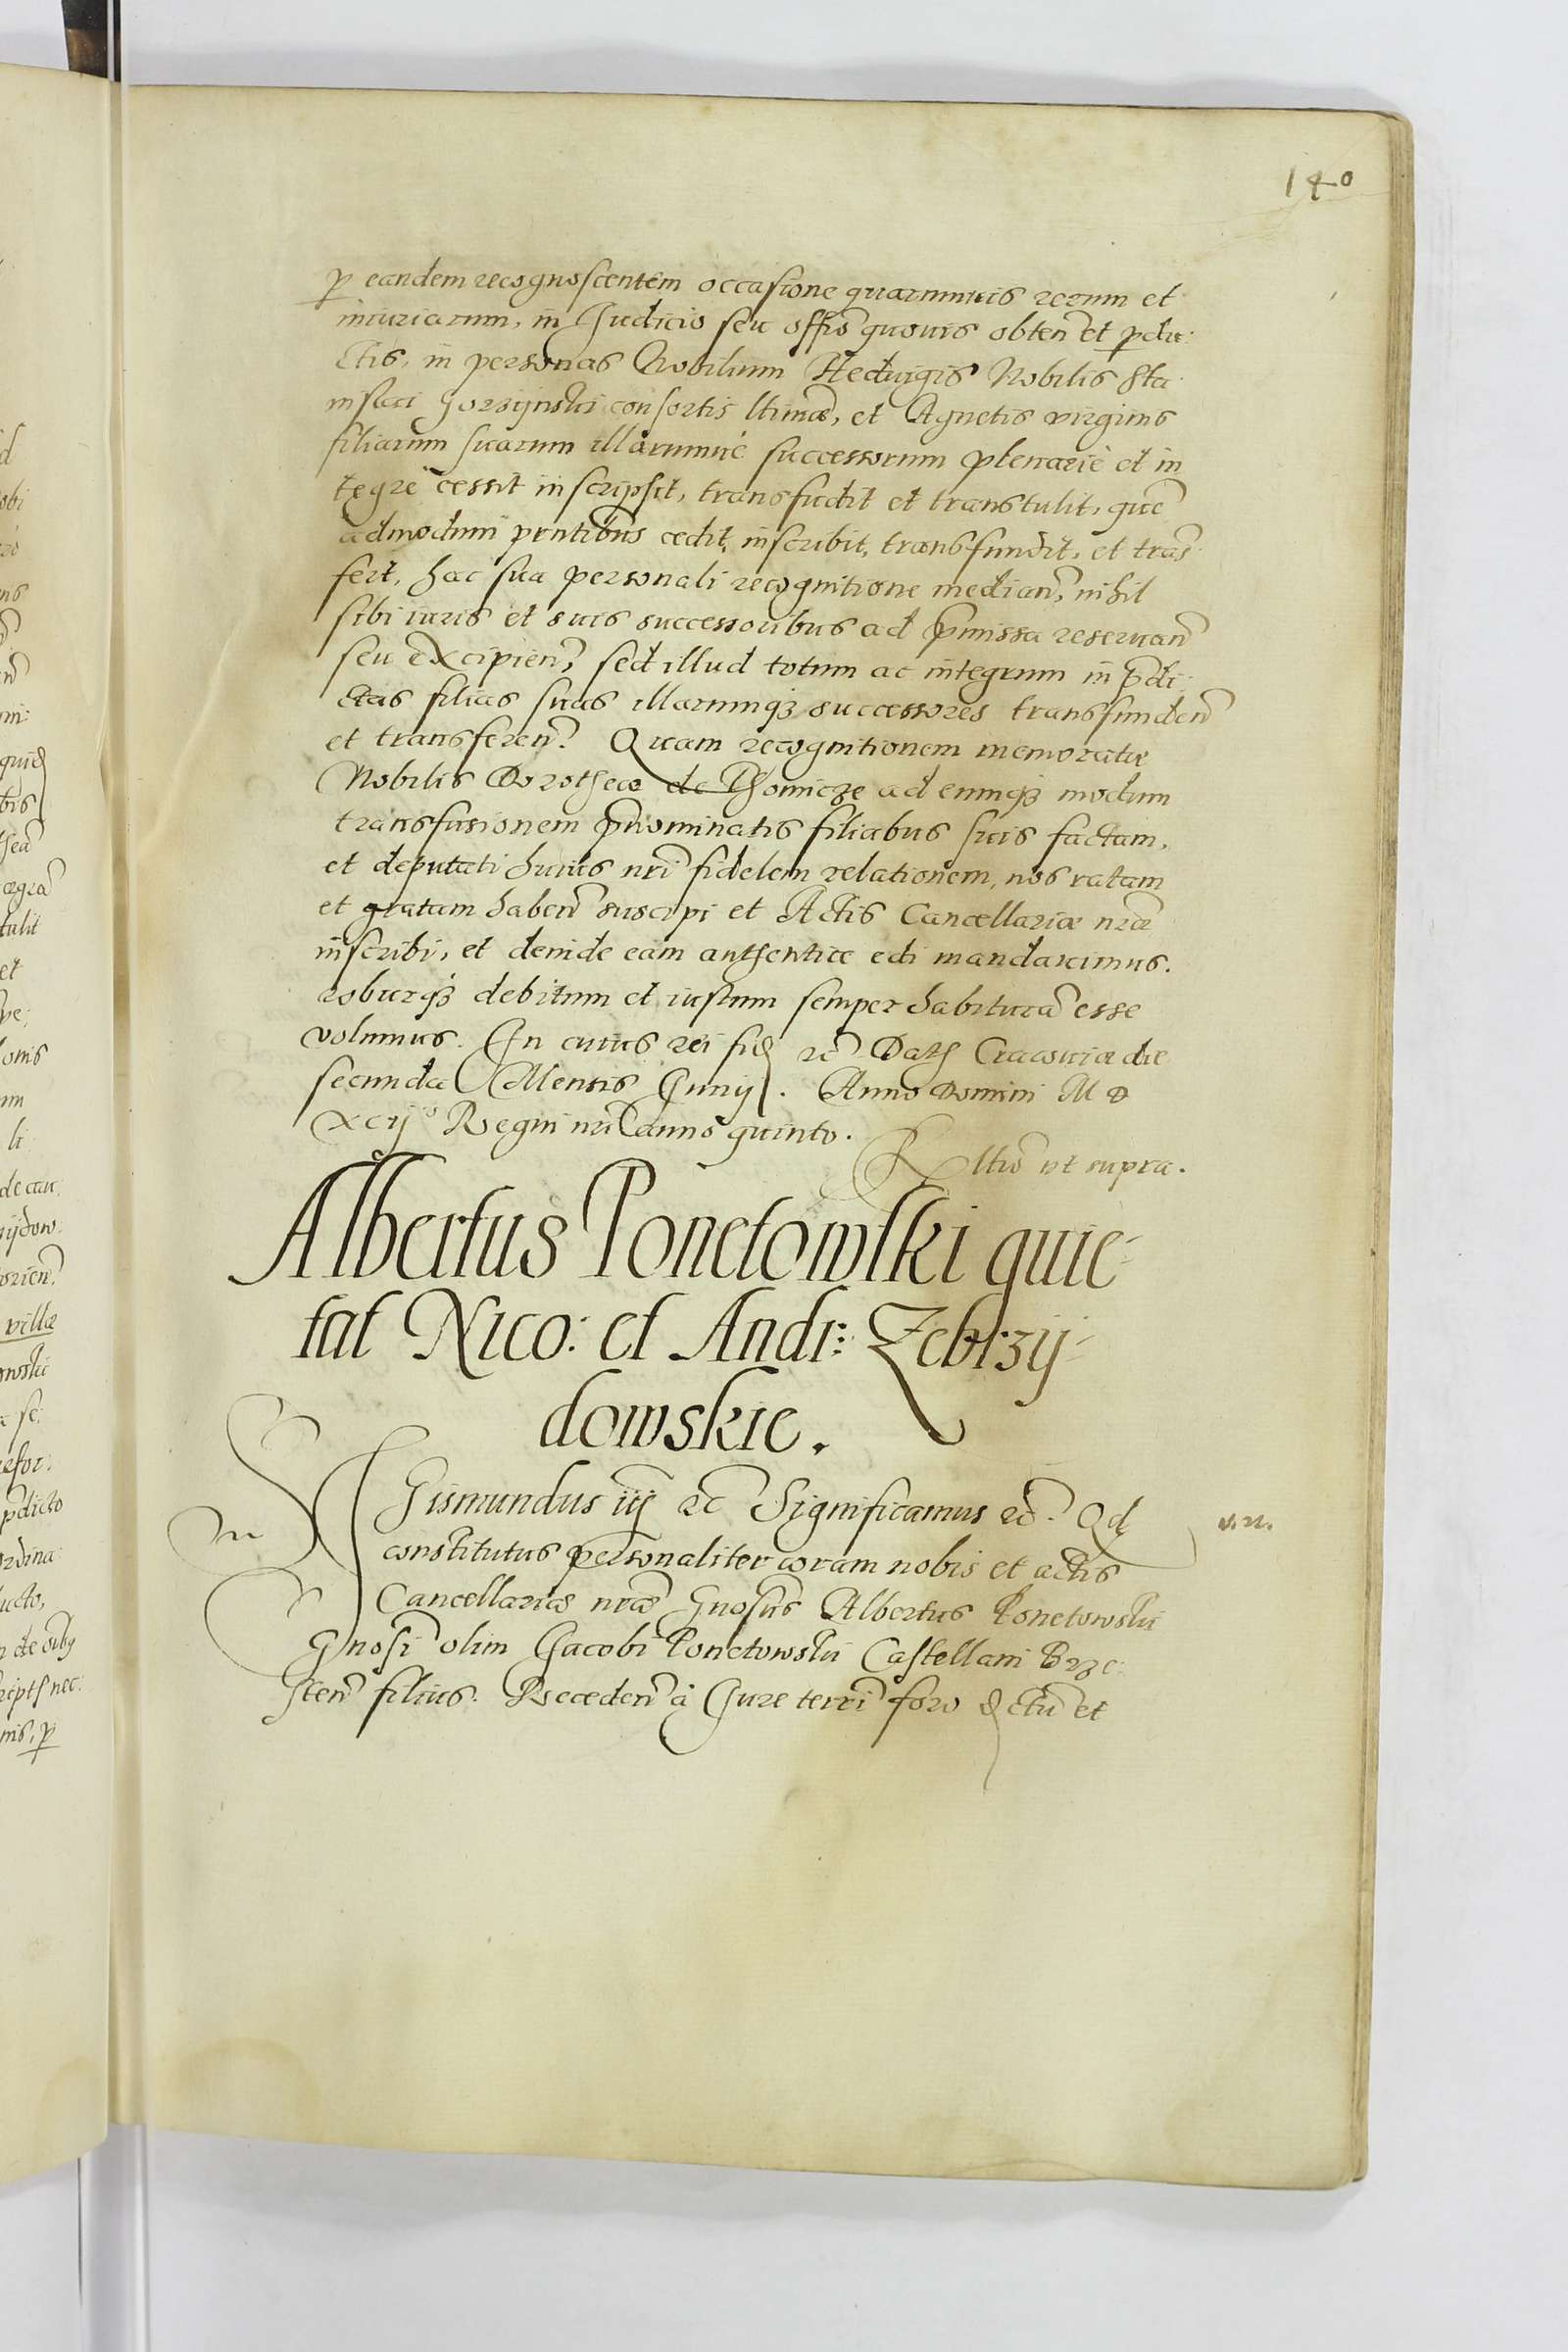 140
p eandem recognoscentem occasione quarumuis rerum et
iniuriarum, in Iudicio seu offio quouis obten et pdu:
ctis, in personas Nobilium Heduigis Nobilis Sta
nislai Gorzijnski consortis ltimæ, et Agnetis virginis
filiarum suarum illarumue successorum plenarie et in
tegre cessit inscripsit, transfudit et transtulit, que
admodum pntibus cedit, inscribit, transfundit, et tras
fert, hac sua personali recognitione median, nihil
sibi iuris et suis successoribus ad pmissa reseruan
seu excipien, sed illud totum ac integrum in pdi
ctas filias suas illarumq3 successores transfunden
et transferen. Quam recognitionem memoratæ
Nobilis Dorotheæ de Chomicze ad eumq3 modum
transfusionem pnominatis filiabus suis factam,
et deputati huius nri fidelem relationem, nos ratam
et gratam haben suscipi et Actis Cancellariæ nræ
inscribi, et deinde eam authentice edi mandauimus.
roburq3 debitum et iustum semper habitura esse
volumus. In cuius rei fid rc Dath Cracouiæ die
secunda Mensis Iunij. Anno Domini M D
xcij° Regni nri anno quinto.
Rltio vt supra.
Albertus Ponetowski quie-
tat Nico: et Andr: Zebrzij-
dowskie.
Sigismundus iij rc Significamus rc. Qd
v. n.
constitutus personaliter coram nobis et actis
Cancellariæ nræ Gnosus Albertus Ponetowski
Gnosi olim Iacobi Ponetowski Castellani Brze:
sten filius. Receden a Iure terri foro dctu et